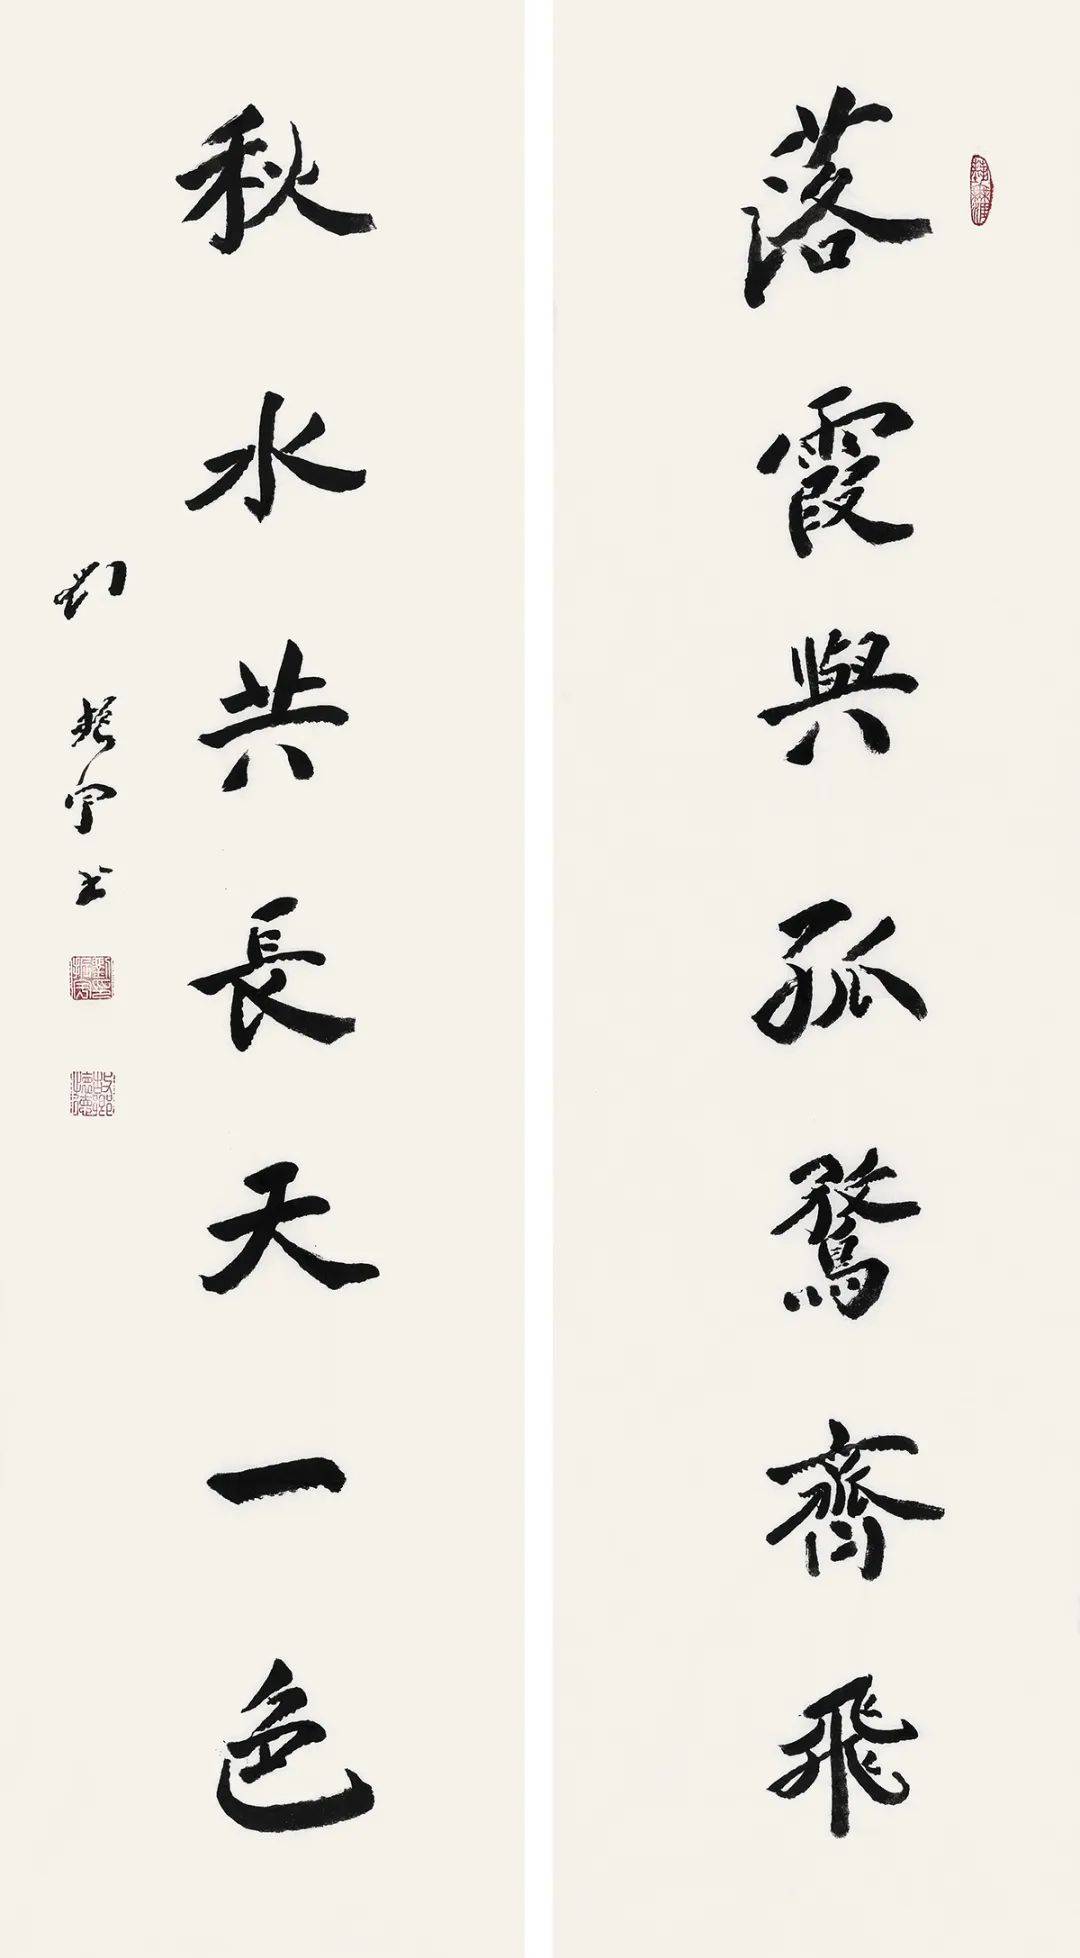 落霞與孤鶩齊飛
秋水共長天一色
劉